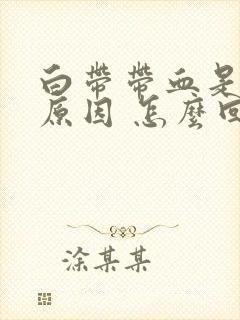 白带带血是
原因 怎么回
涂某某